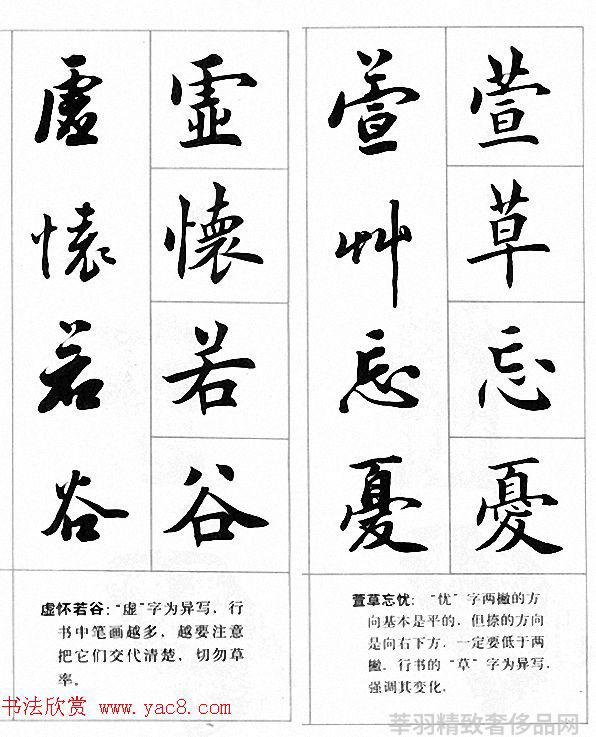 萱草忘憂
萱艸忘憂
萱草忘忧：“忧”字两撇的方
向基本是平的，但捺的方向
是向右下方，一定要低于两
撇。行书的“草”字为异写，
强调其变化。
虛懷若谷
虛懷若谷
虚怀若谷：“虚”字为异写，行
书中笔画越多，越要注意
把它们交代清楚，切勿草
率。
书法欣赏 www.yac8.com
莘羽精致奢侈品网